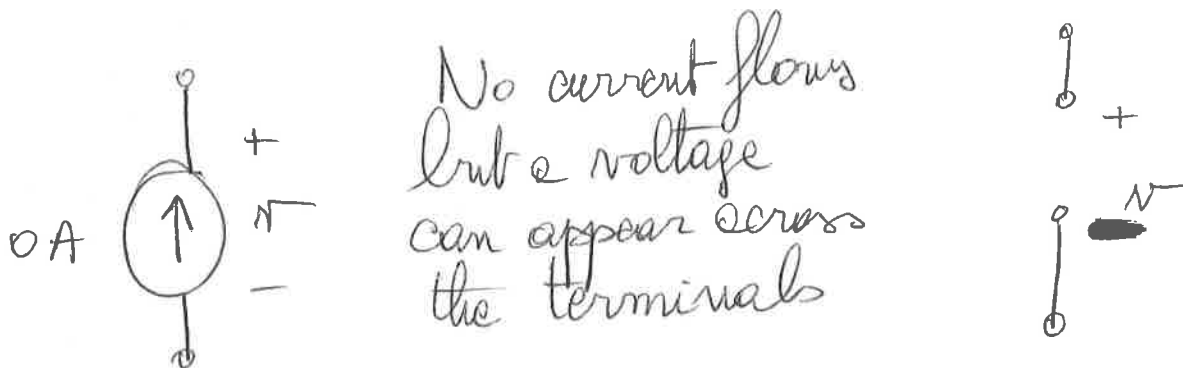 No current flows
but a voltage
can appear across
the terminals
0A
+
v
-
+
v